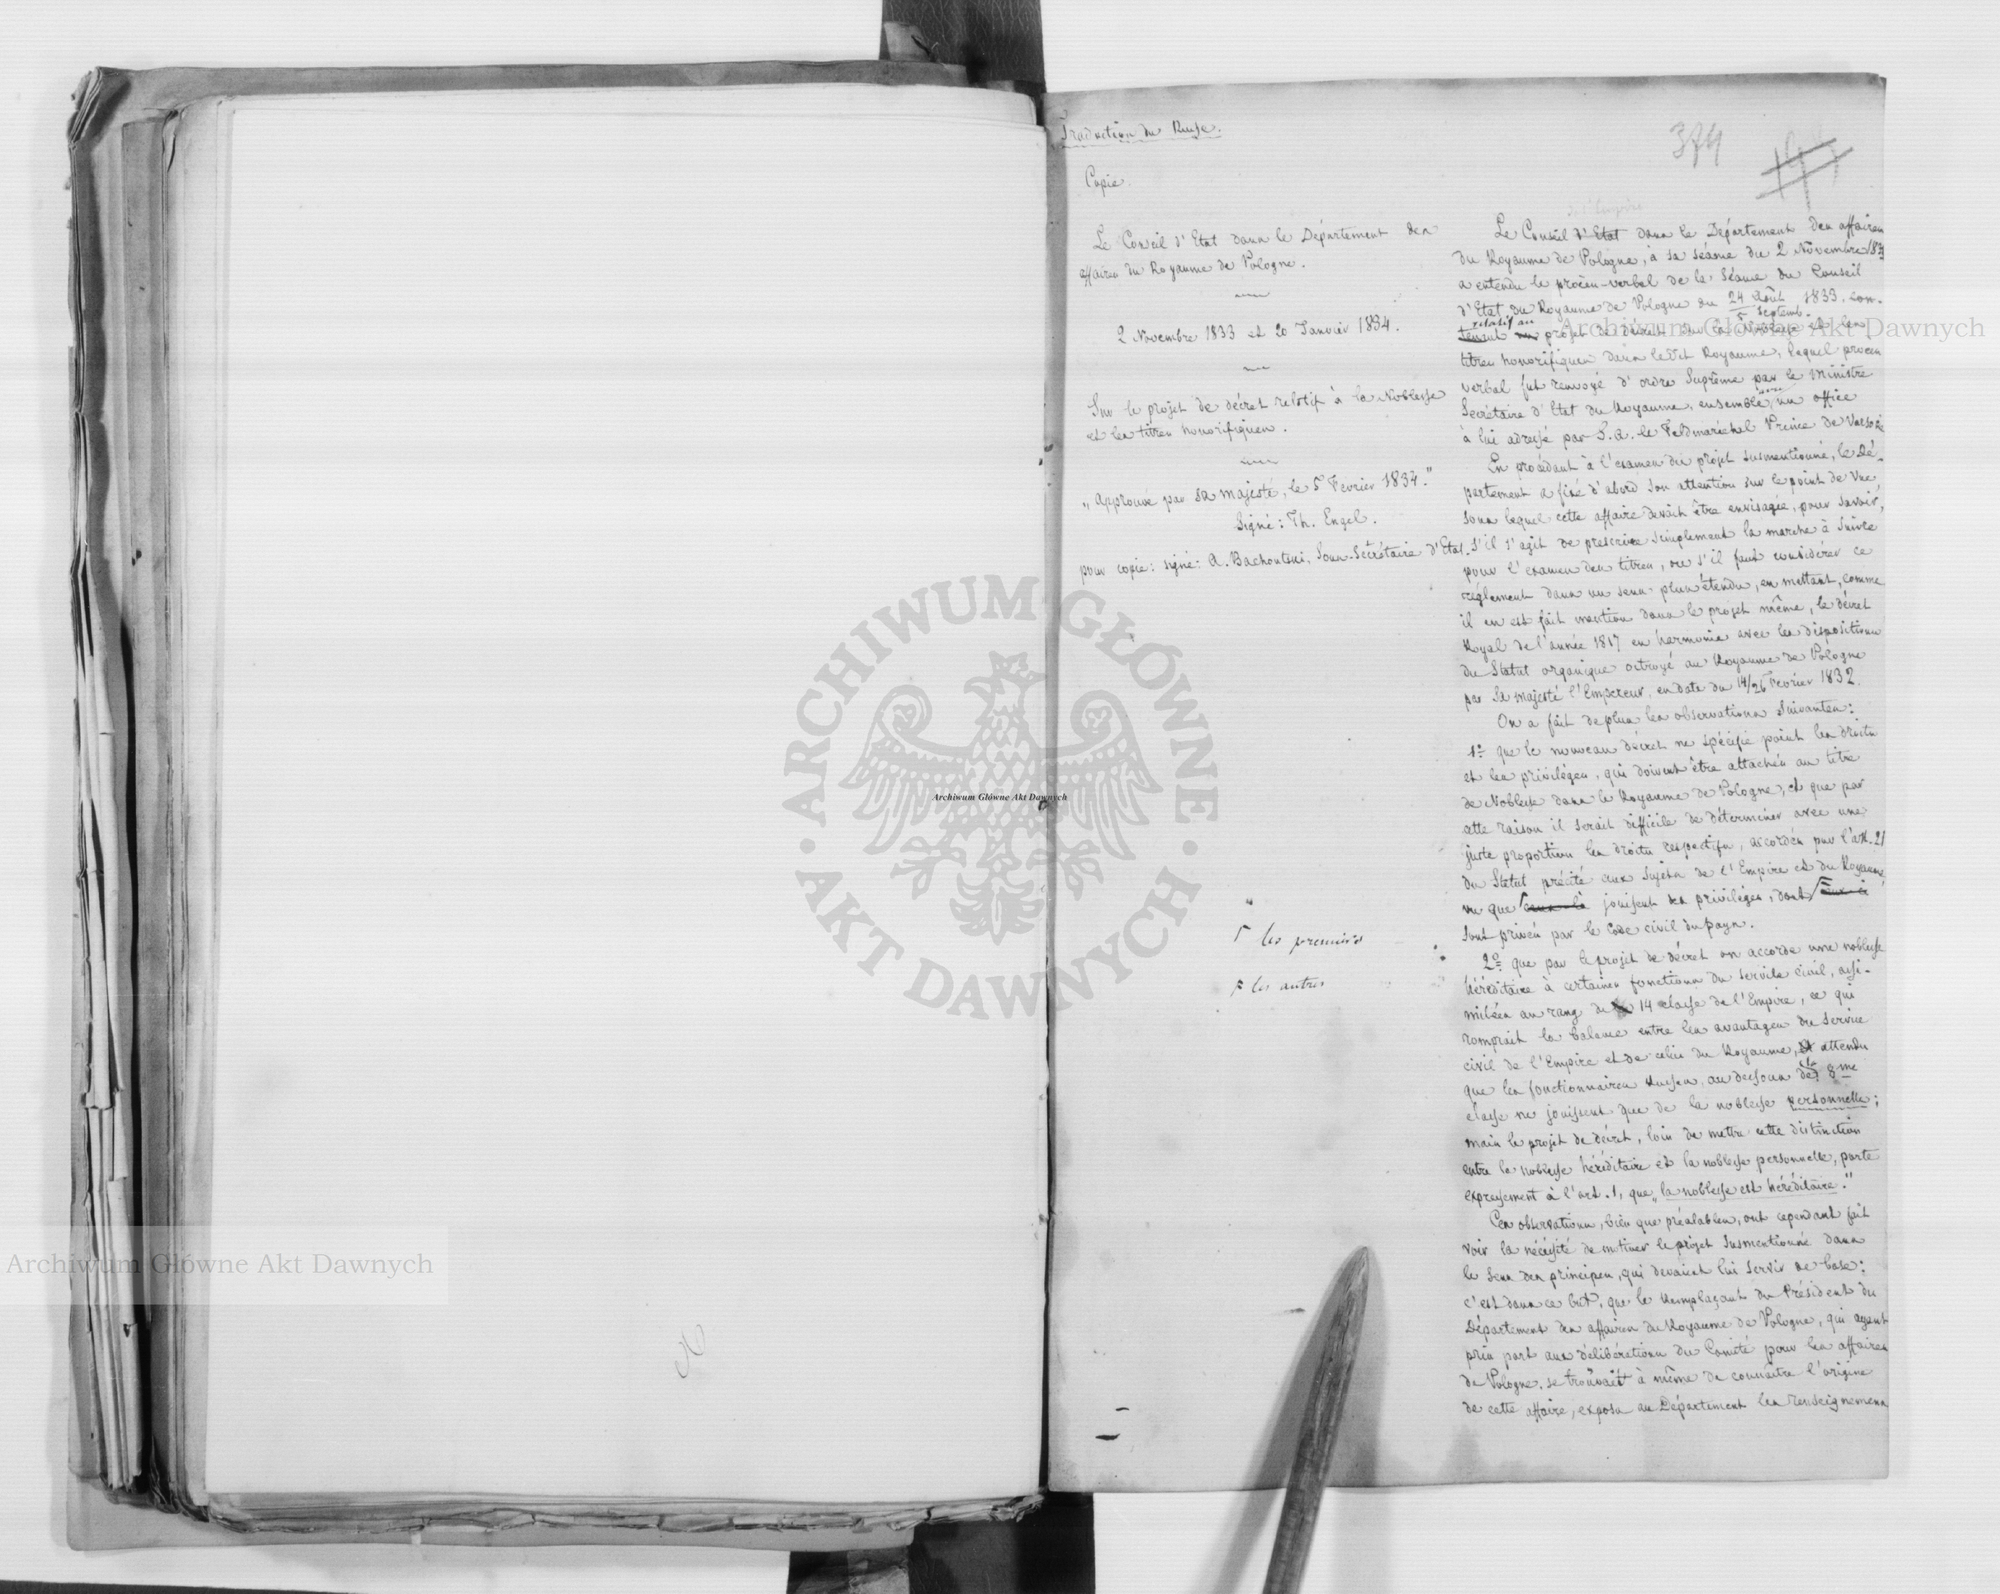 Traduction du Russe.
374
Copie.
Le Conseil d'Etat dans le Département des
affaires du Royaume de Pologne.
2 Novembre 1833 et 20 Janvier 1834.
Sur le projet de décret relatif à la Noblesse
et les titres honorifiques.
„Approuvé par Sa Majesté, le 5 Fevrier 1834."
Signé: Th. Engel.
pour copie: signé: A. Bachoutsni, Sous-Secrétaire d'Etat.
les premiers
les autres
de l'Empire
Le Conseil d'Etat dans le Département des affaires
du Royaume de Pologne, à sa séance du 2 Novembre 1833
a entendu le procès-verbal de la Séance du Conseil
d'Etat du Royaume de Pologne du 24 Août / 5 Septemb. 1833, con-
tenant un relatif au projet de décret sur la Noblesse et les
titres honorifiques dans le dit Royaume, lequel procès
verbal fut renvoyé d'ordre Suprême par le Ministre
Secrétaire d'Etat du Royaume, ensemble avec un office
à lui adressé par S.A. le Feldmaréchal Prince de Varsovie
En procédant à l'examen du projet susmentionné, le Dé-
partement a fixé d'abord son attention sur le point de vue,
sous lequel cette affaire devait être envisagée, pour savoir,
s'il s'agit de prescrire simplement la marche à suivre
pour l'examen des titres, ou s'il faut considérer ce
réglement dans un sens plus étendu, en mettant, comme
il en est fait mention dans le projet même, le décret
Royal de l'année 1817 en harmonie avec les dispositions
du Statut organique octroyé au Royaume de Pologne
par Sa Majesté l'Empereur, en date du 14/26 Fevrier 1832.
On a fait de plus les observations suivantes:
1º que le nouveau décret ne spécifie point les droits
et les privilèges, qui doivent être attachés au titre
de Noblesse dans le Royaume de Pologne, et que par
cette raison il serait difficile de déterminer avec une
juste proportion les droits respectifs, accordés par l'art. 21
du Statut précité aux Sujets de l'Empire et du Royaume,
vu que ceux-là jouissent des privilèges, dont ceux-ci
sont privés par le Code civil du pays.
2º que par le projet de décret on accorde une noblesse
héréditaire à certaines fonctions du service civil, assi-
milées au rang de la 14 classe de l'Empire, ce qui
romprait la balance entre les avantages du Service
civil de l'Empire et de celui du Royaume, attendu
que les fonctionnaires Russes, au dessous de la 8me
classe ne jouissent que de la noblesse personnelle;
mais le projet de décret, loin de mettre cette distinction
entre la noblesse héréditaire et la noblesse personnelle, porte
expressement à l'art. 1, que „la noblesse est héréditaire."
Ces observations, bien que préalables, ont cependant fait
voir la nécessité de motiver le projet susmentionné dans
le sens des principes, qui devaient lui servir de base:
c'est dans ce but, que le Remplaçant du Président du
Département des affaires du Royaume de Pologne, qui ayant
pris part aux délibérations du Comité pour les affaires
de Pologne, se trouvait à même de connaître l'origine
de cette affaire, exposa au Département les renseignemens
Archiwum Główne Akt Dawnych
Archiwum Główne Akt Dawnych
Archiwum Główne Akt Dawnych
ARCHIWUM GŁÓWNE AKT DAWNYCH